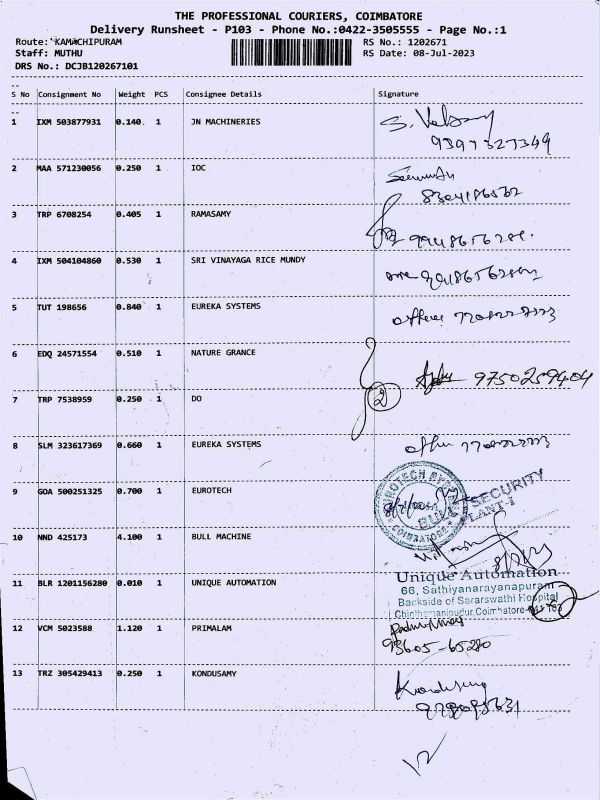 THE PROFESSIONAL COURIERS, COIMBATORE
Delivery Runsheet - P103 - Phone No.:0422-3505555 - Page No.:1
Route: KAMACHIPURAM RS No.: 1202671
Staff: MUTHU RS Date: 08-Jul-2023
DRS No.: DCJB120267101
S No Consignment No Weight PCS Consignee Details Signature
1 IXM 503877931 0.140 1 JN MACHINERIES
2 MAA 571230056 0.250 1 IOC
3 TRP 6708254 0.405 1 RAMASAMY
4 IXM 504104860 0.530 1 SRI VINAYAGA RICE MUNDY
5 TUT 198656 0.840 1 EUREKA SYSTEMS
6 EDQ 24571554 0.510 1 NATURE GRANCE
9750259404
7 TRP 7538959 0.250 1 DO 2
8 SLM 323617369 0.660 1 EUREKA SYSTEMS
9 GOA 500251325 0.700 1 EUROTECH
COIMBATORE
BULL SECURITY
PLANT-I
10 NND 425173 4.100 1 BULL MACHINE
11 BLR 1201156280 0.010 1 UNIQUE AUTOMATION
Unique Automation
66, Sathiyanarayanapuram
Backside of Sararswathi Hospital
Chinthamanipudur, Coimbatore-641 103
12 VCM 5023588 1.120 1 PRIMALAM
93605-65280
13 TRZ 305429413 0.250 1 KONDUSAMY